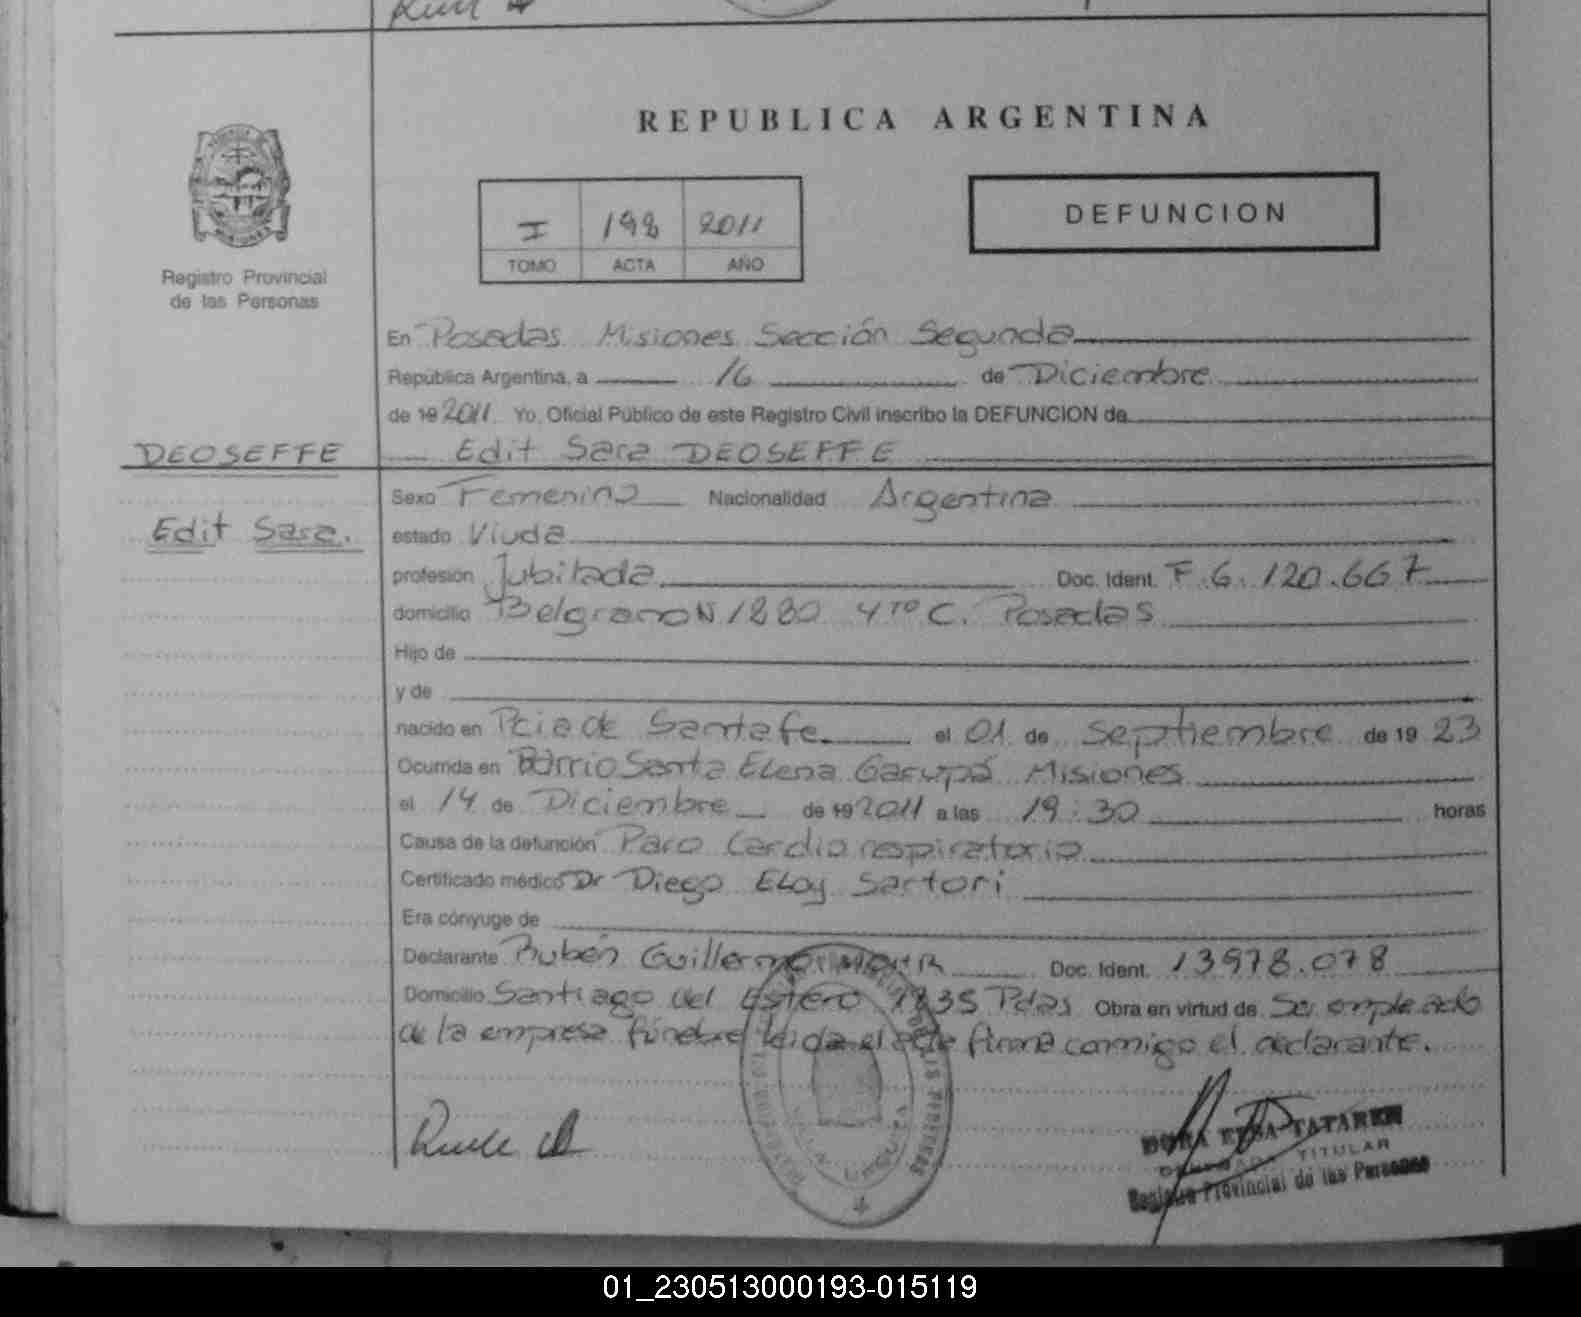 REPUBLICA ARGENTINA
I 198 2011
TOMO ACTA AÑO
DEFUNCION
Registro Provincial
de las Personas
En Posadas Misiones Sección Segunda
República Argentina, a 16 de Diciembre
de 19 2011 Yo, Oficial Público de este Registro Civil inscribo la DEFUNCION de
DEOSEFFE
Edit Sara.
Edit Sara DEOSEFFE
Sexo Femenino Nacionalidad Argentina
estado Viuda
profesión Jubilada Doc. Ident. F.6.120.667
domicilio Belgrano N 1880 4to C. Posadas
Hijo de
y de
nacido en Pcia de Santa fe el 01 de Septiembre de 19 23
Ocurrida en Barrio Santa Elena Garupá Misiones
el 14 de Diciembre de 19 2011 a las 19:30 horas
Causa de la defunción Paro Cardio respiratorio
Certificado médico Dr Diego Eloy Sartori
Era cónyuge de
Declarante Rubén Guillermo Doc. Ident. 13978.078
Domicilio Santiago del Estero 1835 Pdas Obra en virtud de Ser empleado
de la empresa fúnebre leida el acta firma conmigo el declarante.
TITULAR
Registro Provincial de las Personas
01_230513000193-015119